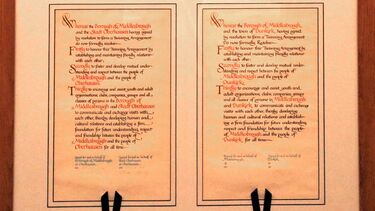 Whereas the Borough of Middlesbrough
and the Stadt Oberhausen having agreed
by resolution to form a Twinning Arrangement
do now formally resolve—
Firstly to honour this Twinning Arrangement by
establishing and maintaining friendly relations
with each other.
Secondly to foster and develop mutual under-
standing and respect between the people of
Middlesbrough and
Oberhausen.
Thirdly to encourage and assist youth and adult
organisations, clubs, companies, groups and all
classes of persons in the Borough of
Middlesbrough and Stadt Oberhausen
to communicate and exchange visits with
each other, thereby developing human and
cultural relations and establishing a firm
foundation for future understanding, respect
and friendship between the people of
Middlesbrough and the people of
Oberhausen for all time—
Whereas the Borough of Middlesbrough
and the town of Dunkirk, having agreed
by resolution to form a Twinning Arrangement
Do now formally Resolve—
Firstly to honour this Twinning Arrangement by
establishing and maintaining friendly relations
with each other.
Secondly to foster and develop mutual under-
standing and respect between the people
of Middlesbrough and the people of
Dunkirk.
Thirdly to encourage and assist youth and
adult organisations, clubs, companies, groups
and all classes of persons in Middlesbrough
and Dunkirk, to communicate and exchange
visits with each other, thereby developing
human and cultural relations and establishing
a firm foundation for future understanding
respect and friendship between the people
of Middlesbrough and the people of
Dunkirk, for all time—